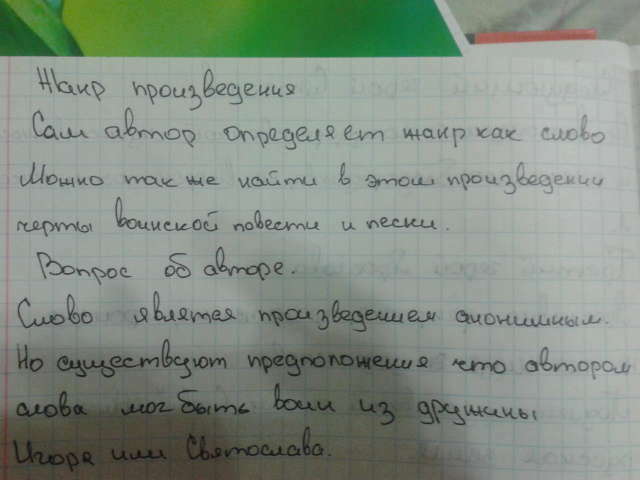 Жанр произведения
Сам автор определяет жанр как слово
Можно так же найти в этом произведении
черты воинской повести и песни.
Вопрос об авторе.
Слово является произведением анонимным.
Но существуют предположения что автором
слова мог быть воин из дружины
Игоря или Святослава.